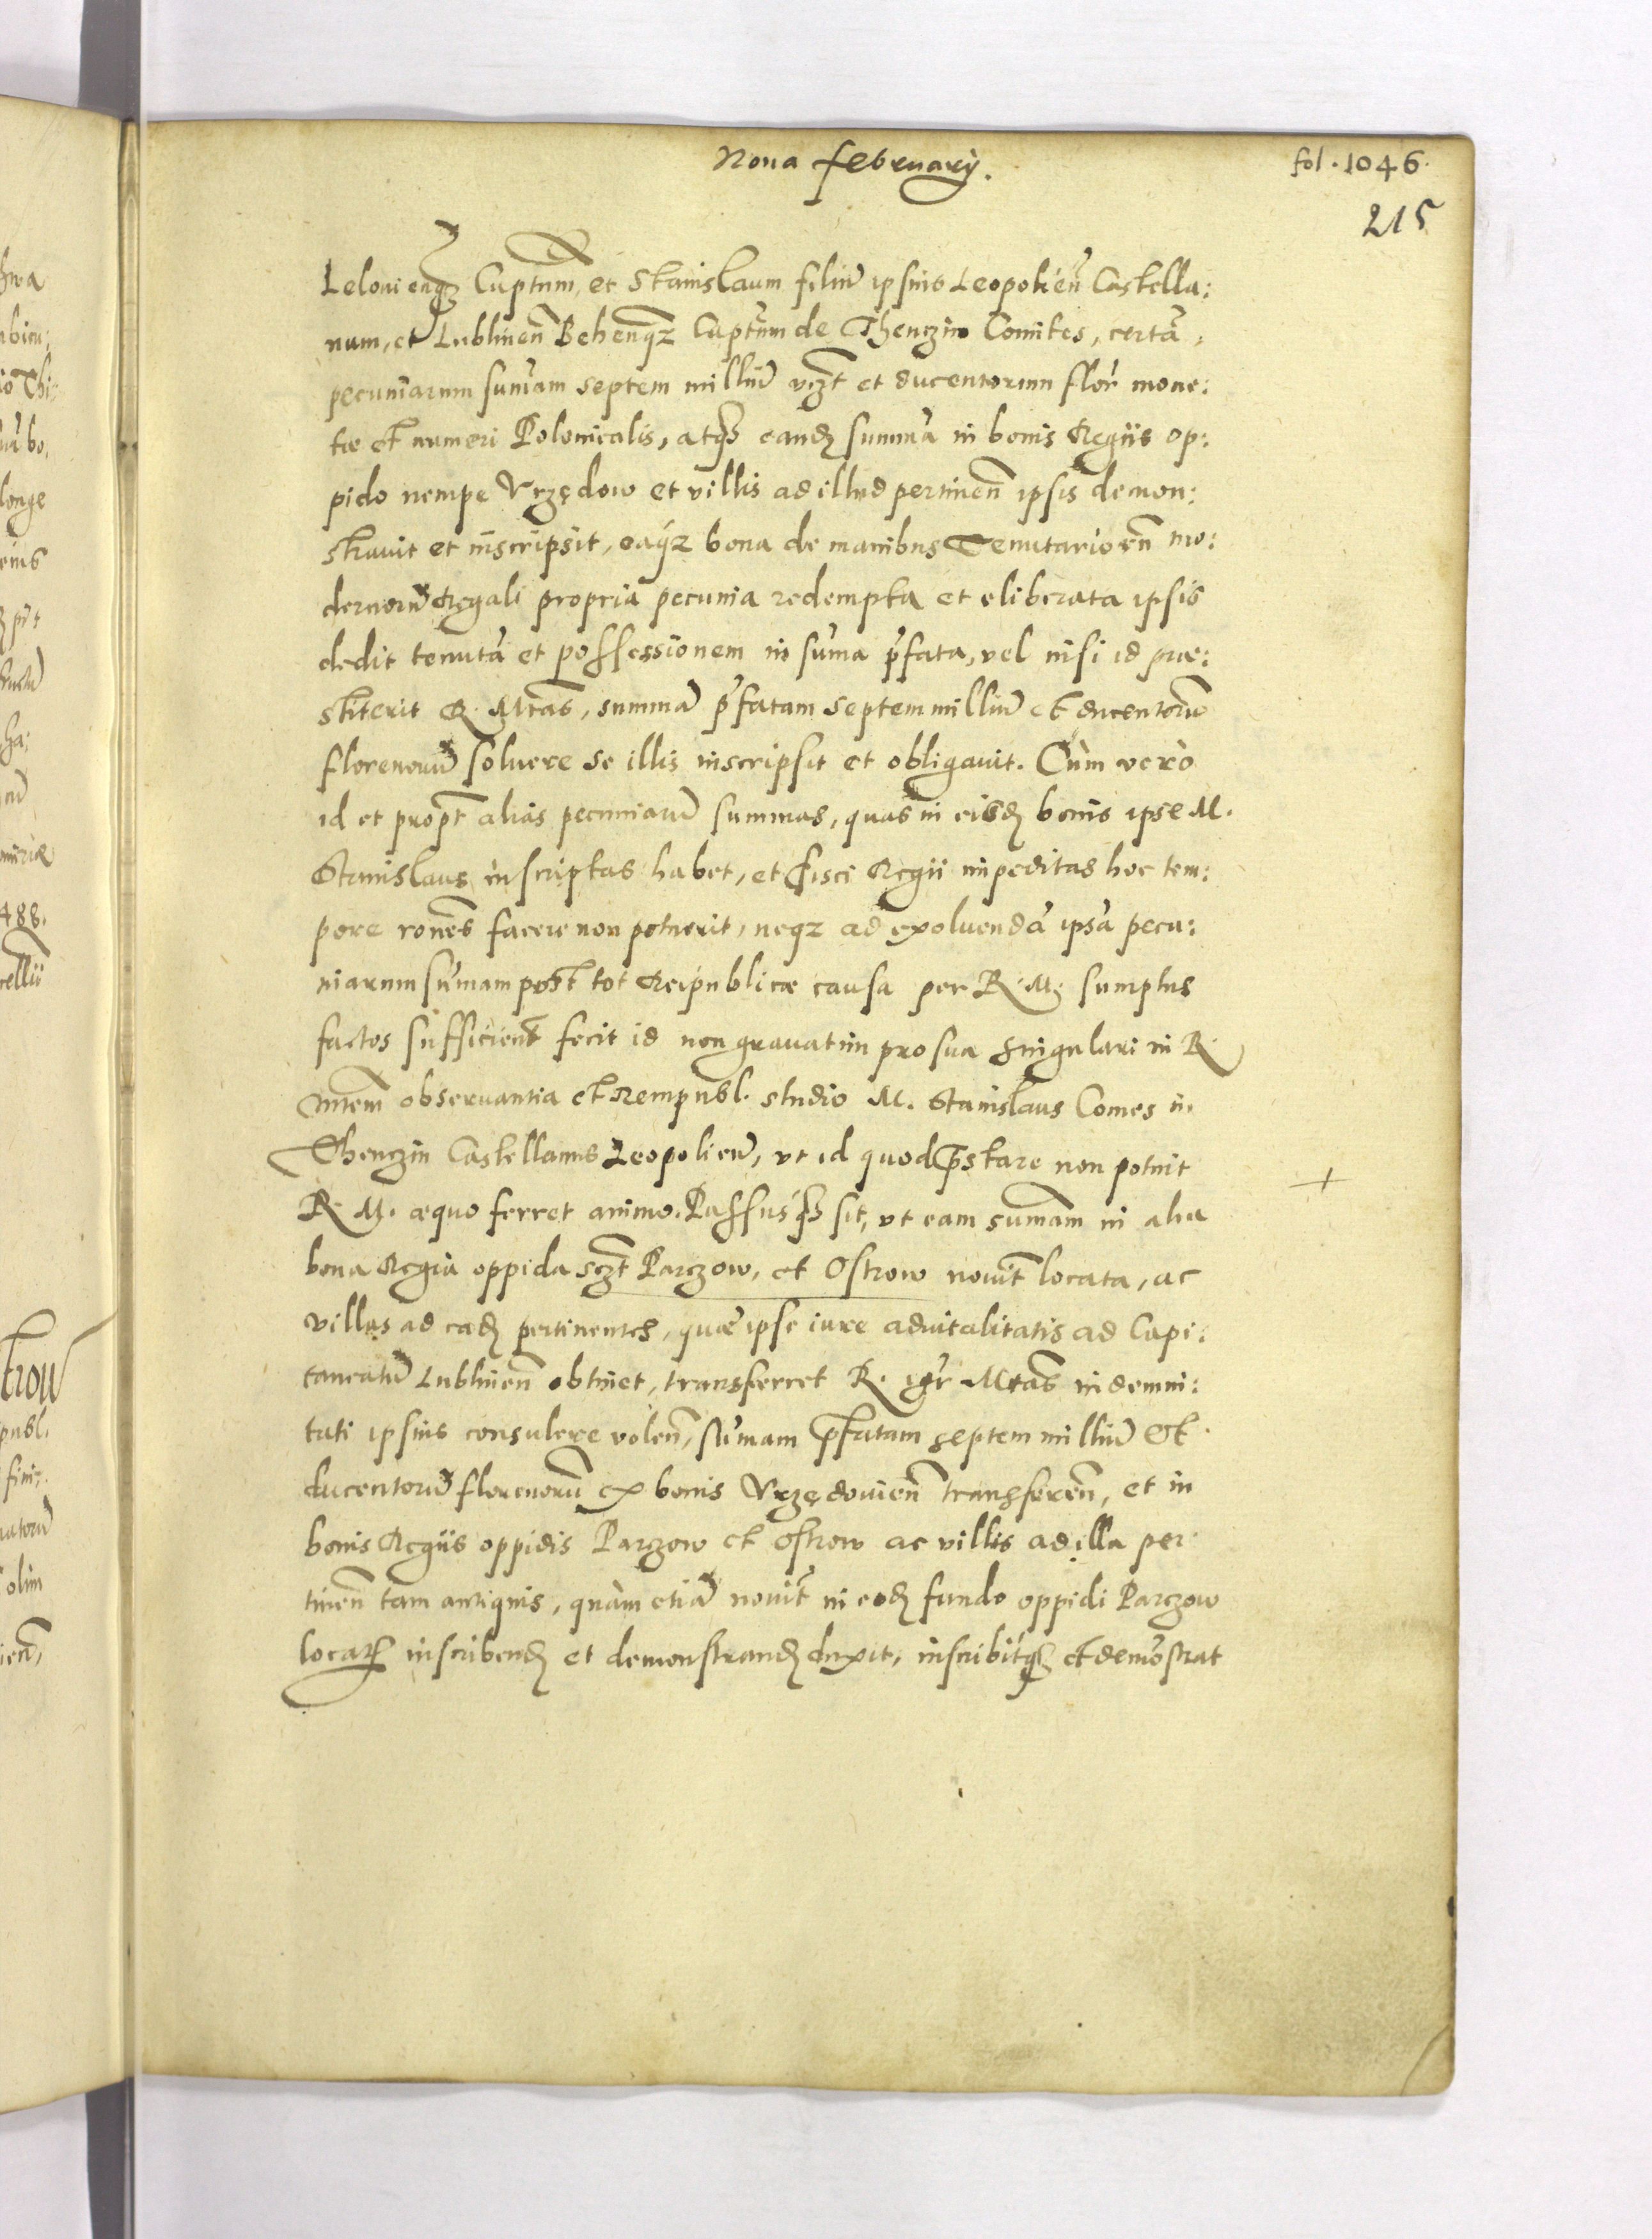 Nona february.
fol. 1046.
215
Leloviengz Captnm, et Stanislaum filiū ipsius Leopolień Castella:
num, et Lublineñ Belzengz Captnm de Thenczin Comites, certā
pecuniarum sum̄am septem milliū vczt et ducentorum flor̄ mone:
tæ et numeri Polonicalis, atqз eandз summā in bonis Regiis op:
pido nempe Vrzędow et villis ad illud pertineñ ipsis demon:
stravit et inscripsit, eaqz bona de manibus Tenutariorum mo:
dernorū Regali propria pecunia redempta et eliberata ipsis
dedit tenutā et possessionem in sum̄a p̄fata, vel nisi id præ:
stiterit R. Mtas, summā p̄fatam septem milliū et ducentorū
florenorū soluere se illis inscripsit et obligauit. Cùm verò
id et propt alias pecuniarū summas, quas in eisdз bonis ipse M.
Stanislaus inscriptas habet, et fisci Regii impeditas hoc tem:
pore roñes facere non potuerit, neqz ad exoluendā ipsā pecu:
niarum sum̄am post tot Reipublicæ causa per R. M. sumptus
factos sufficient fecit id non grauatim pro sua singulari in R.
Mtem obseruantia et Rempubl. studio M. Stanislaus Comes in
Thenczin Castellanus Leopolieñ, vt id quod p̄stare non potuit
R. M. æquo ferret animo. Passusqз sit, vt eam sum̄am in alia
bona Regia oppida sczt Parczow, et Ostrow nouit locata, ac
villas ad eadз pertinentes, quæ ipse iure aduitalitatis ad Capi:
taneatū Lublineñ obtinet, transferret R. igr Mtas indemni:
tati ipsius consulere voleñ, sum̄am p̄fatam septem milliū et
ducentorū florenorū ex bonis Vrzędouieñ transfereñ, et in
bonis Regiis oppidis Parczow et Ostrow ac villis ad illa per
tineñ tam antiquis, quàm etiā nouit in eodз fundo oppidi Parczow
locatз inscribendз et demonstrandз duxit, inscribitqз et demōstrat